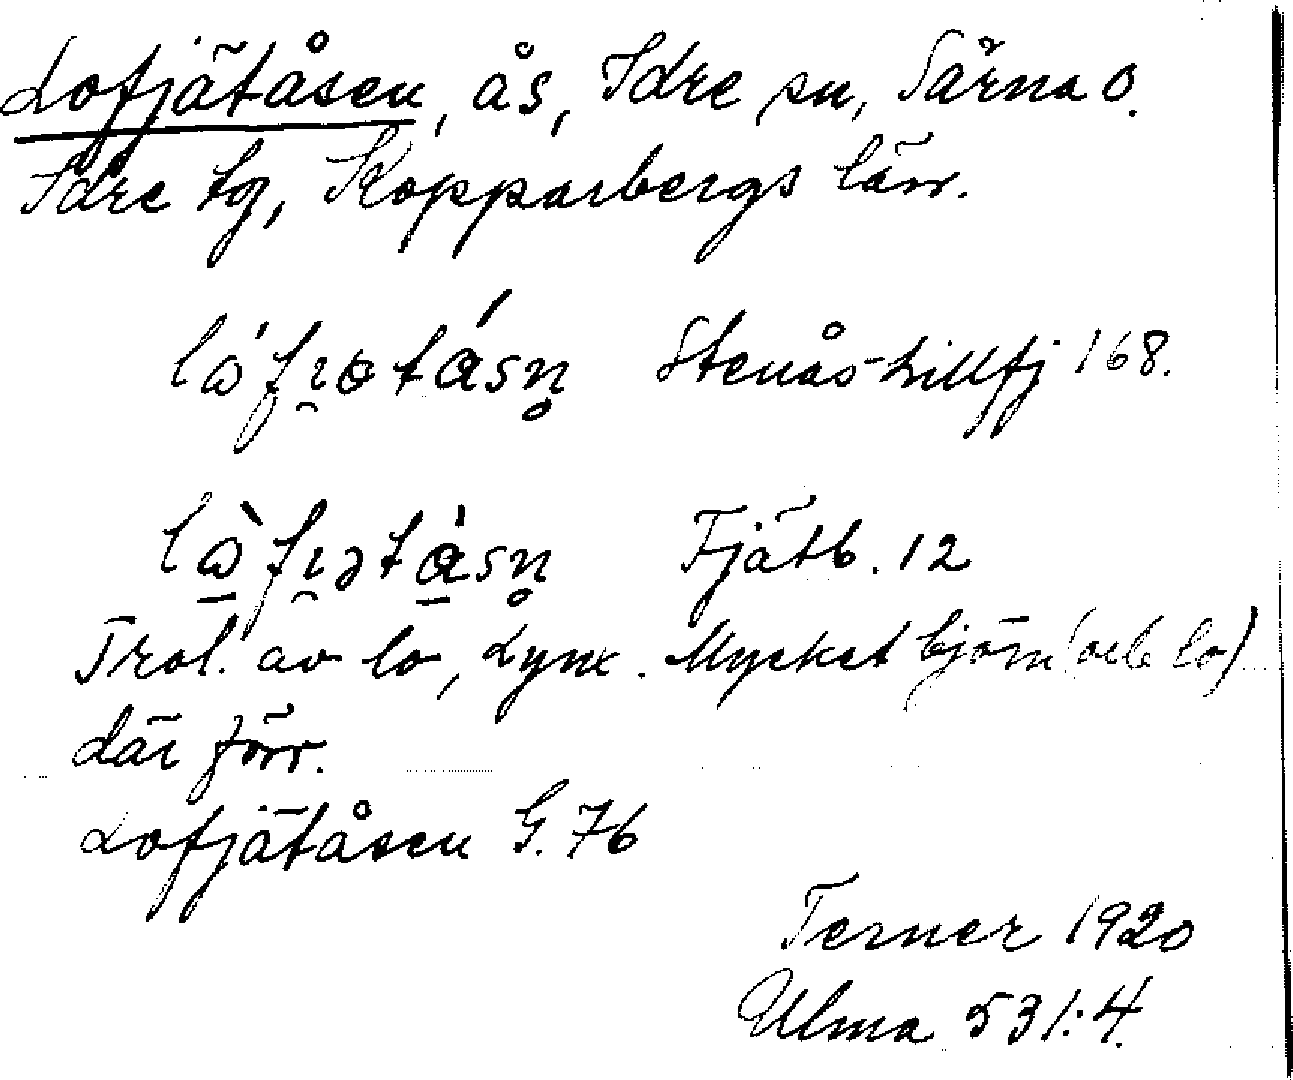 Lofjätåsen, ås, Idre sn, Särna o.
Idre tg, Kopparbergs län.
Stenås-hillfj 168.
Fjätb. 12
Trol. av lo, Lynx. Mycket björn (och lo)
där förr.
Lofjätåsen G. 76
Terner 1920
Ulma 531:4.